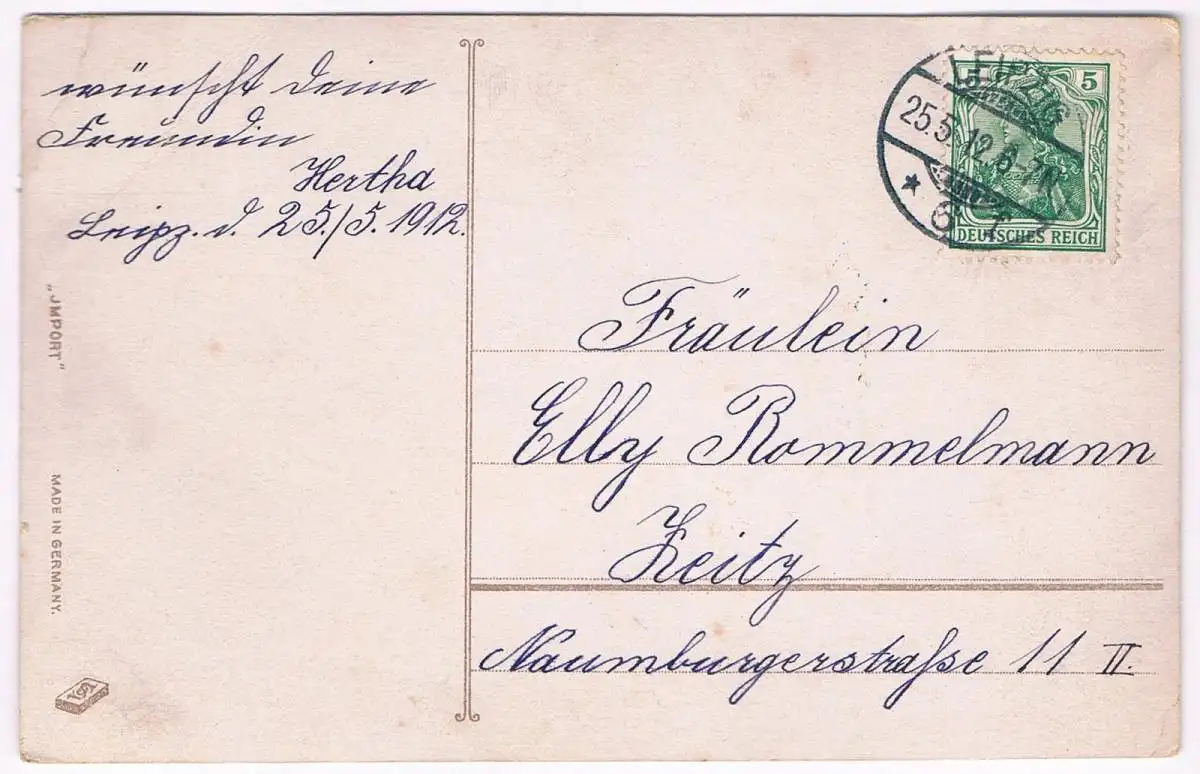 wünscht Deine
Freundin
Hertha
Leipz. d. 25./5. 1912.
"JMPORT"
MADE IN GERMANY.
LEIPZIG
25.5.12.6-7N.
* 6
5 5
DEUTSCHES REICH
Fräulein
Elly Rommelmann
Zeitz
Naumburgerstraſse 11 II.